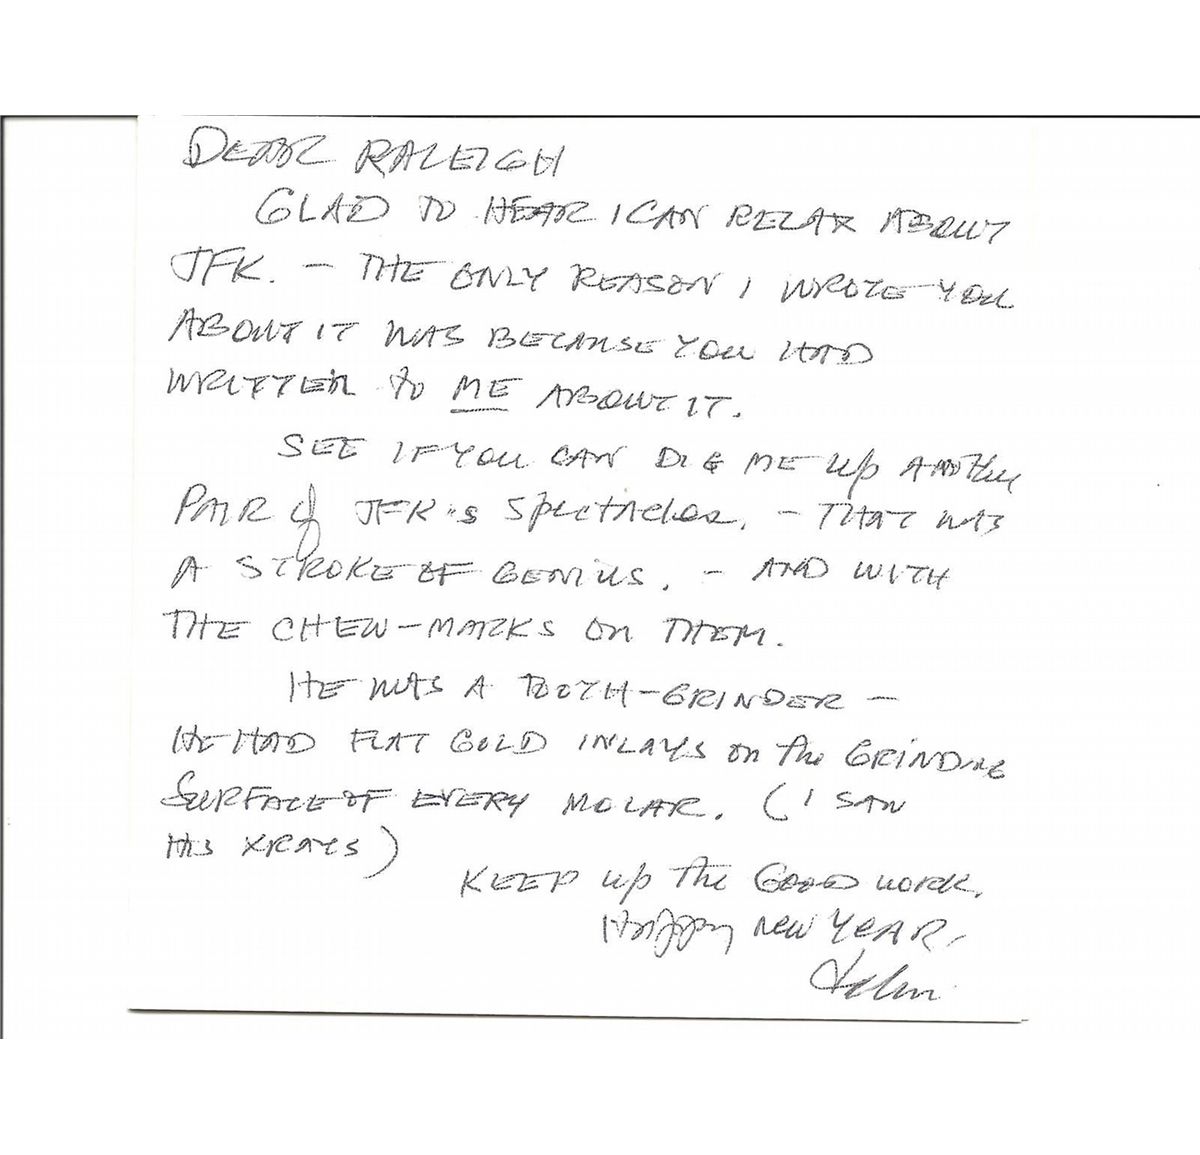 DEAR RALEIGH
GLAD TO HEAR I CAN RELAX ABOUT
JFK. – THE ONLY REASON I WROTE YOU
ABOUT IT WAS BECAUSE YOU HAD
WRITTEN to ME ABOUT IT.
SEE IF YOU CAN DIG ME up ANOTHER
PAIR of JFK's Spectacles. – THAT WAS
A STROKE OF GENIUS. – AND WITH
THE CHEW-MARKS ON THEM.
HE WAS A TOOTH-GRINDER –
HE HAD FLAT GOLD INLAYS on the GRINDING
SURFACE OF EVERY MOLAR. (I SAW
HIS XRAYS)
KEEP up the GOOD WORK.
Happy NEW YEAR,
John